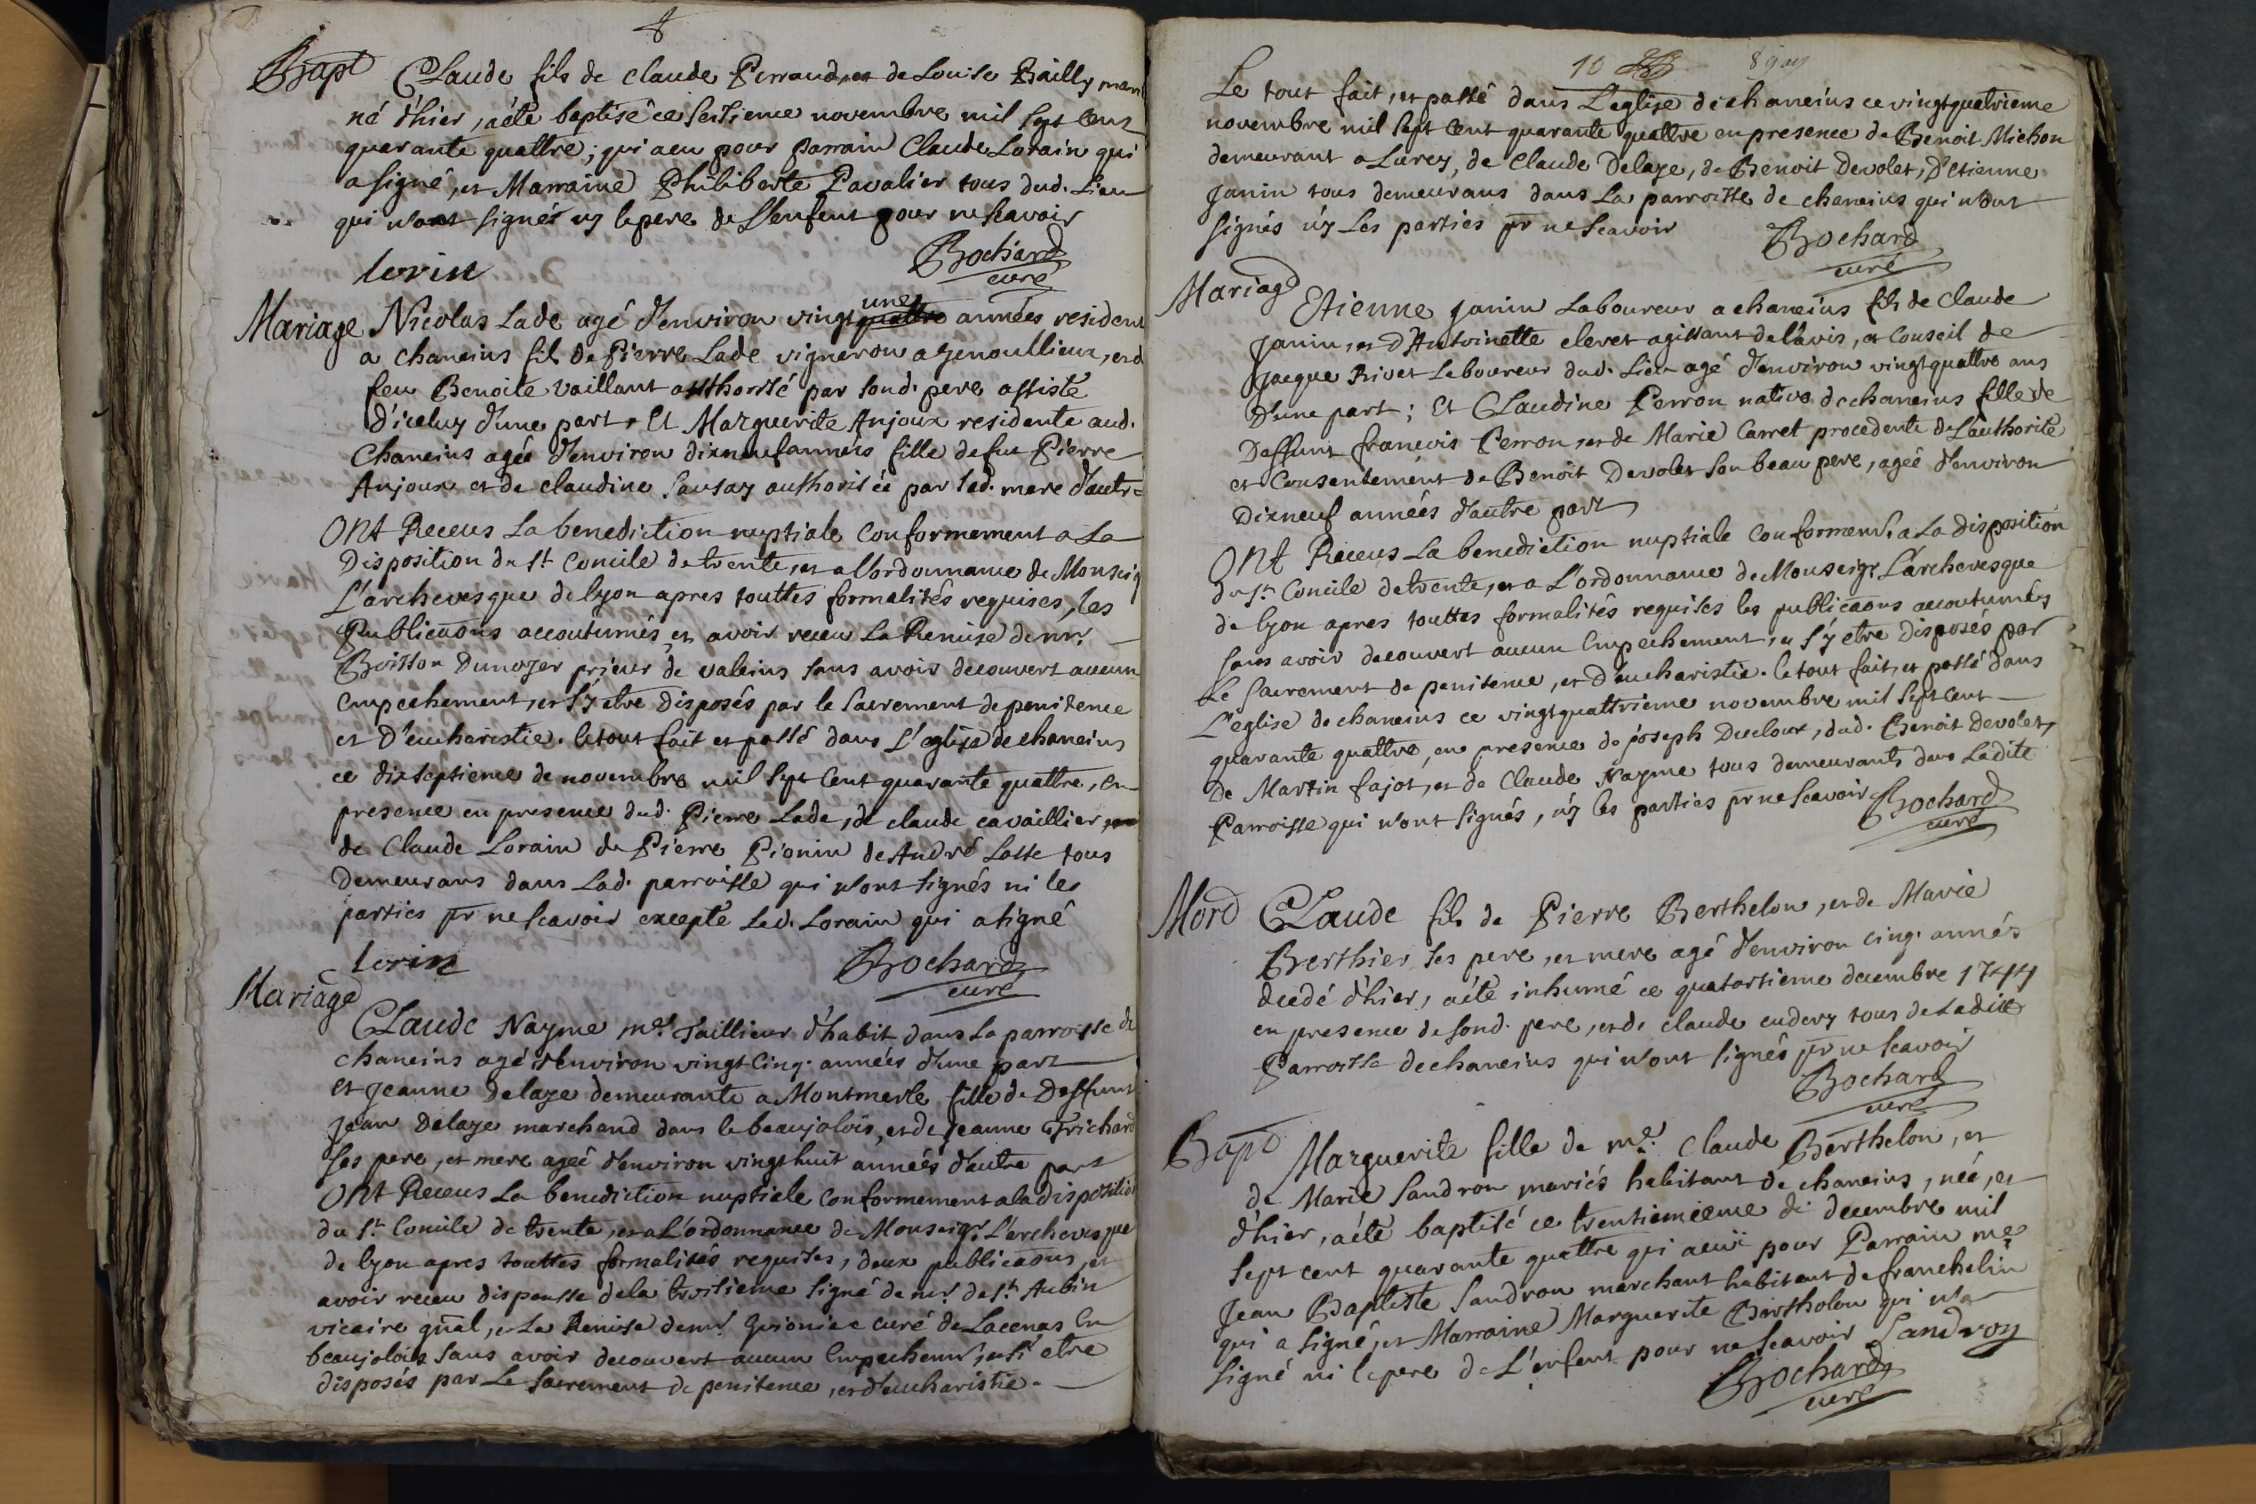 8
Bapt Claude fils de claude Perraud, et de Louise Bailly mari
né d'hier, a été baptisé ce seizieme novembre mil sept cent
quarante quattre; qui a eu pour parrain Claude Lorain qui
a signé, et Marraine Philiberte Cavalier tous dud. Lieu
qui n'ont signés ny le pere de L'enfent pour ne scavoir
lorin Bochard curé
Mariage Nicolas Lade agé d'environ vingt une quattre années resident
a chaneins fils de Pierre Lade vigneron a genoullieux, et d
feu Benoite Vaillant authorisé par sond. pere assisté
d'iceluy d'une part. Et Marguerite Anjoux residente aud.
Chaneins agée d'environ dixneuf années fille de fut Pierre
Anjoux et de claudine sausay authorisée par sad. mere d'autre
Ont Receus La benediction nuptiale conformement a La
Disposition du St. Concile de trente, et a l'ordonnance de Monseig
L'archevesque de lyon apres touttes formalités requises, les
Publicaons accoutumés, et avoir receu La Remise de mr.
Boisson Dunoyer prieur de valeins sans avoir decouvert aucun
empechement, et s'y etre disposés par le sacrement de penitence
et d'eucharistie. le tout fait et passé dans L'eglise de chaneins
ce dixseptieme de novembre mil sept cent quarante quattre, en
presence en presence dud. Pierre Lade, de claude cavaillier,
de Claude Lorain de Pierre Pionin de André Lasse tous
demeurans dans Lad. parroisse qui n'ont signés ni les
parties pr ne scavoir excepté Led. Lorain qui a signé
lorin Bochard curé
Mariage
Claude Nayme me. Taillieur d'habit dans La parroisse de
chaneins agé d'environ vingt cinq. années d'une part
et Jeanne Delaye demeurante a Montmerle fille de Deffunt
Jean Delaye marchand dans le beaujolois, et de Jeanne Trichard
ses pere, et mere ageé d'environ vingt huit années d'autre part
Ont Receus La benediction nuptiale conformement a la disposition
du St. Concile de trente, et a L'ordonnance de Monseigr. L'archevesque
de lyon apres touttes formalités requises, deux publicaons, et
avoir receu dispensse dela troisieme signé de mr. de St. Aubin
vicaire gnal, et La Remise demr. Guionie curé de Lacenas En
beaujolois sans avoir decouvert aucun Empechemt, et s'i etre
disposés par Le sacrement de penitence, et d'eucharistie.
10
Le tout fait, et passé dans L'eglise de chaneins ce vingtquatrieme
novembre mil sept cent quarante quattre en presence de Benoit Michon
demeurant a Lurcy, de Claude Delaye, de Benoit Devolet, D'etienne
Janin tous demeurans dans La parroisse de chaneins qui n'ont
signés ny Les parties pr ne scavoir Bochard curé
Mariage
Etienne Janin Laboureur a chaneins fils de Claude
Janin, et d'Antoinette clevet agissant de l'avis, et conseil de
Jacque Rivet Laboureur dud. Lieu agé d'environ vingtquattre ans
d'une part; Et Claudine Perron native de chaneins fille de
Deffunt francois Perron, et de Marie Carret procedente de L'authorité
et consentement de Benoit Devolet son beau pere, ageé d'environ
Dixneuf années d'autre part
Ont Receus La benediction nuptiale conformemt. a La disposition
du St. Concile de trente, et a L'ordonnance de Monseigr. L'archevesque
de lyon apres touttes formalités requises les publicaons accoutumées
sans avoir decouvert aucun Empechement, et s'y etre disposés par
Le sacrement de penitence, et d'eucharistie. le tout fait, et passé dans
L'eglise de chaneins ce vingtquattrieme novembre mil sept cent
quarante quattre, en presence de joseph Ducloux, dud. Benoit Devolet,
De Martin fajot, et de Claude Nayme tous demeurants dans Ladite
Parroisse qui n'ont signés, ny les parties pr ne scavoir Bochard curé
Mord Claude fils de Pierre Berthelon, et de Marie
Berthier ses pere, et mere agé d'environ cinq. années
decedé d'hier, a été inhumé ce quatortieme decembre 1744
en presence de sond. pere, et de claude cudery tous de Ladite
Parroisse de chaneins qui n'ont signés pr ne scavoir
Bochard curé
Bapt Marguerite fille de me. Claude Berthelon, et
de Marie Sandron mariés habitant de chaneins, néé, et
d'hier, a été baptisé ce trentiemeeme de decembre mil
sept cent quarante quattre qui a eü pour Parrain me
Jean Baptiste Sandron marchant habitant de franchelin
qui a signé, et Marraine Marguerite Bertholon qui n'a
signé ni le pere de L'enfent pour ne scavoir Sandron
Bochard curé